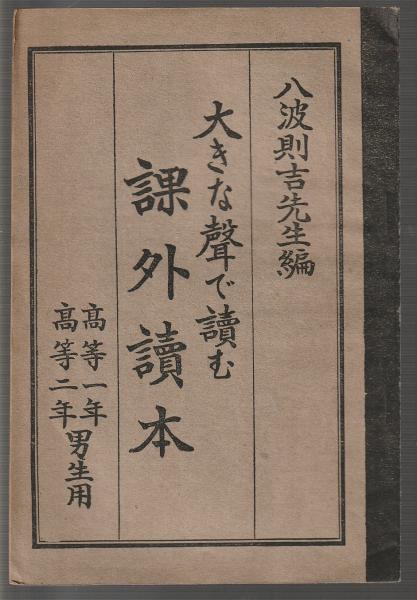 八波則吉先生編
大きな聲で讀む
課外讀本
高等一年
高等二年
男生用